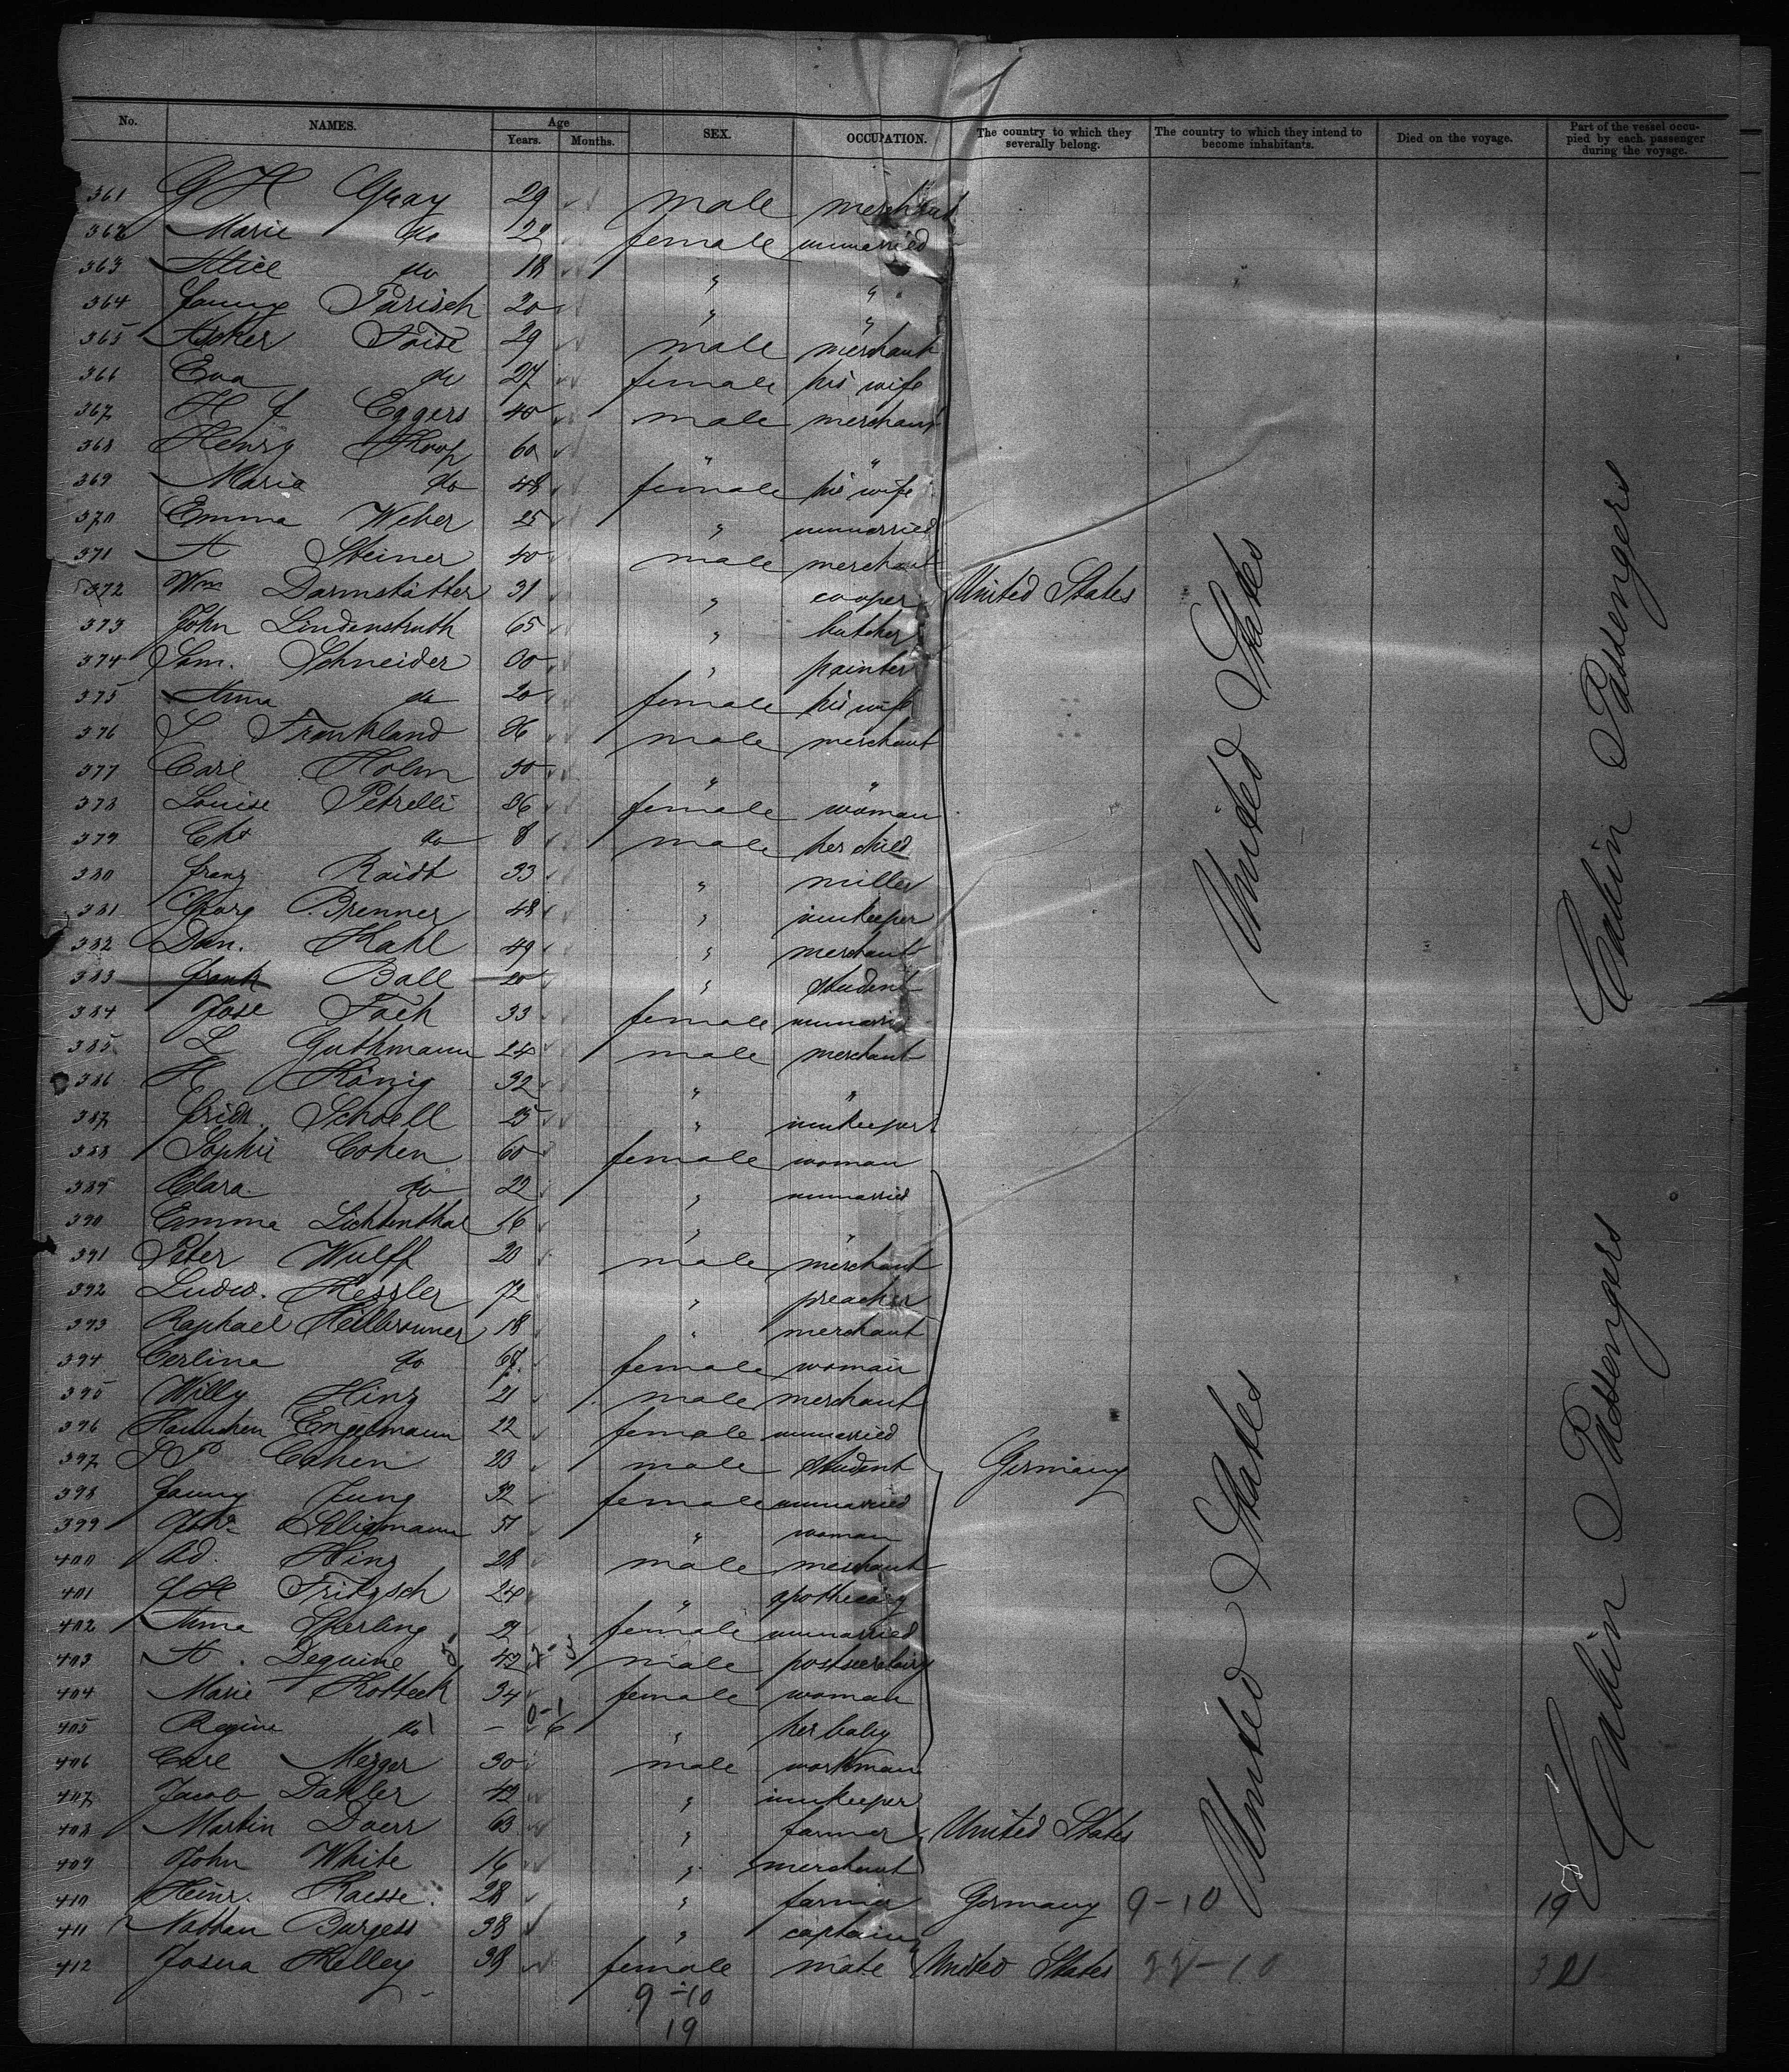 No. NAMES. Age Years. Months. SEX. OCCUPATION. The country to which they severally belong. The country to which they intend to become inhabitants. Died on the voyage. Part of the vessel occupied by each passenger during the voyage.
361 G H Gray 29 male merchant
362 Marie do 22 female unmarried
363 Alice do 18 " "
364 Fanny Parisch 20 " "
365 29 male merchant
366 Eva do 27 female his wife
367 H F Eggers 40 male merchant
368 Henry Koop 60 " "
369 Maria do 48 female his wife
370 Emma Weber 25 " unmarried
371 A Steiner 40 male merchant
372 Wm Darmstätter 31 " cooper United States
373 John Lindenstruth 65 " butcher
374 Sam. Schneider " painter
375 Anna do 20 female his wife
376 S Frankland male merchant
377 Carl Holm 30 " "
378 Louise Petrelli 36 female woman
379 Chs do 8 male her child
380 Franz Raidt 33 " miller
381 Georg Brenner 48 " innkeeper
382 Dan. Kahl 49 " merchant
383 Frank Ball 20 " student
384 Jose Foch 33 female unmarried
385 L Guthmann 24 male merchant
386 H König 32 " "
387 Fridr. Schoell 25 " innkeeper
388 Sophie Cohen 60 female woman
389 Clara do 22 " unmarried
390 Emma Lichtenthal 16 " "
391 Peter Wulff 23 male merchant
392 Ludw. Kessler 72 " preacher
393 Raphael Heilbronner 18 " merchant
394 Cerline do female woman
395 Willy Hinz 21 male merchant
396 Hannchen Engelmann 22 female unmarried
397 S P Cahen 23 male student Germany
398 Fanny Jung 32 female unmarried
399 51 " woman
400 Ad. Hinz 28 male merchant
401 Fritzsch 24 " apothecary
402 Anna Skerling female unmarried
403 A. Dequine 42 male postsecretary
404 Marie Kotteck 34 female woman
405 Regine do — 6 " her baby
406 Carl Mezger 30 male workman
407 Jacob Dahler 42 " innkeeper
408 Martin Doerr 63 " farmer United States
409 John White 16 " merchant
410 Heinr. Kaesse 28 " farmer Germany 9-10 19
411 Nathan Burgess 38 " captain
412 Josua Kelley 38 female mate United States 22-10
9-10
19
United States
United States
Cabin Passengers
Cabin Passengers